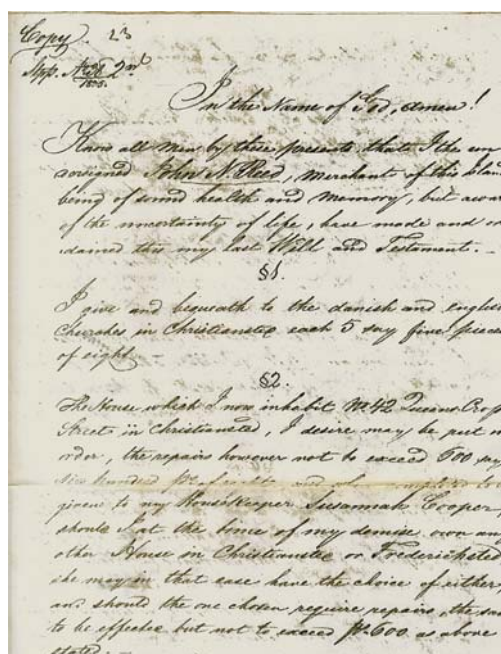 Copy. 23
App. 2nd
In the Name of God, Amen!
Know all Men by these presents, that I the un
dersigned John N. Reed, merchant of this Islan
being of sound health and memory, but awar
of the uncertainty of life, have made and or
dained this my last Will and Testament. -
§1.
I give and bequeath to the danish and english
Churches in Christiansted each 5 say five pieces
of eight
§2.
The House which I now inhabit No 42 Queens Cross
Street in Christiansted, I desire may be put in
order, the repairs however not to exceed 600 say
Six hundred ps of eight and when completed to be
given to my Housekeeper Susannah Cooper,
should I at the time of my demise own any
other House in Christiansted or Fredericksted
she may in that case have the choice of either,
and should the one chosen require repairs, the sam
to be effected but not to exceed ps. 600 as above
stated. -